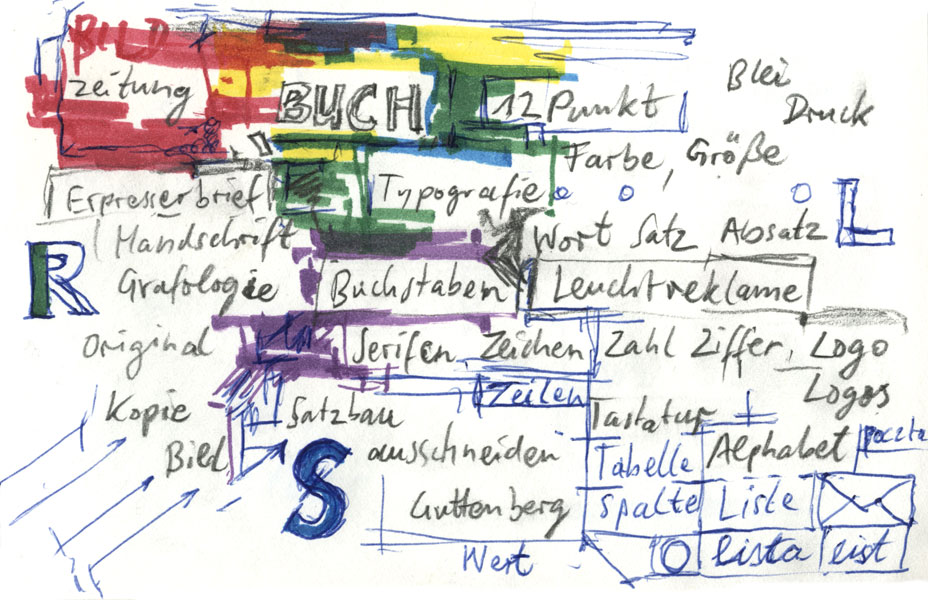 BILD
zeitung
BUCH
12 Punkt
Blei
Druck
Farbe, Größe
Erpresserbrief
Typografie
L
Handschrift
Wort Satz Absatz
R
Grafologie
Buchstaben
Leuchtreklame
Original
Serifen, Zeichen
Zahl Ziffer, Logo
Logos
Kopie
Satzbau
Zeilen
Tastatur
Bild
S
ausschneiden
Tabelle
Alphabet
poczta
Guttenberg
Spalte
Liste
Wert
lista
list